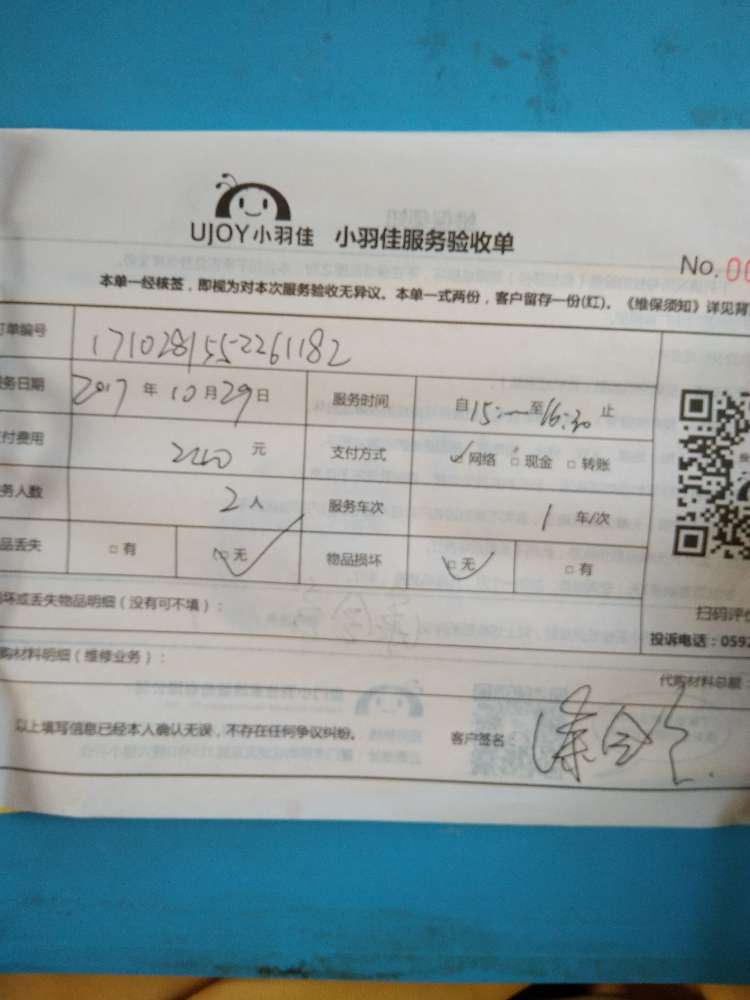 UJOY小羽佳 小羽佳服务验收单
No. 00
本单一经核签，即视为对本次服务验收无异议。本单一式两份，客户留存一份(红)。《维保须知》详见背
订单编号 1710281552261182
务日期 2017 年 10 月 29 日 服务时间 自 15:— 至 16:30 止
付费用 元 支付方式 网络 现金 转账
务人数 2 人 服务车次 1 车/次
品丢失 有 无 物品损坏 无 有
坏或丢失物品明细（没有可不填）：
扫码评价
购材料明细（维修业务）：
投诉电话：0592
代购材料总额：
以上填写信息已经本人确认无误，不存在任何争议纠纷。 客户签名